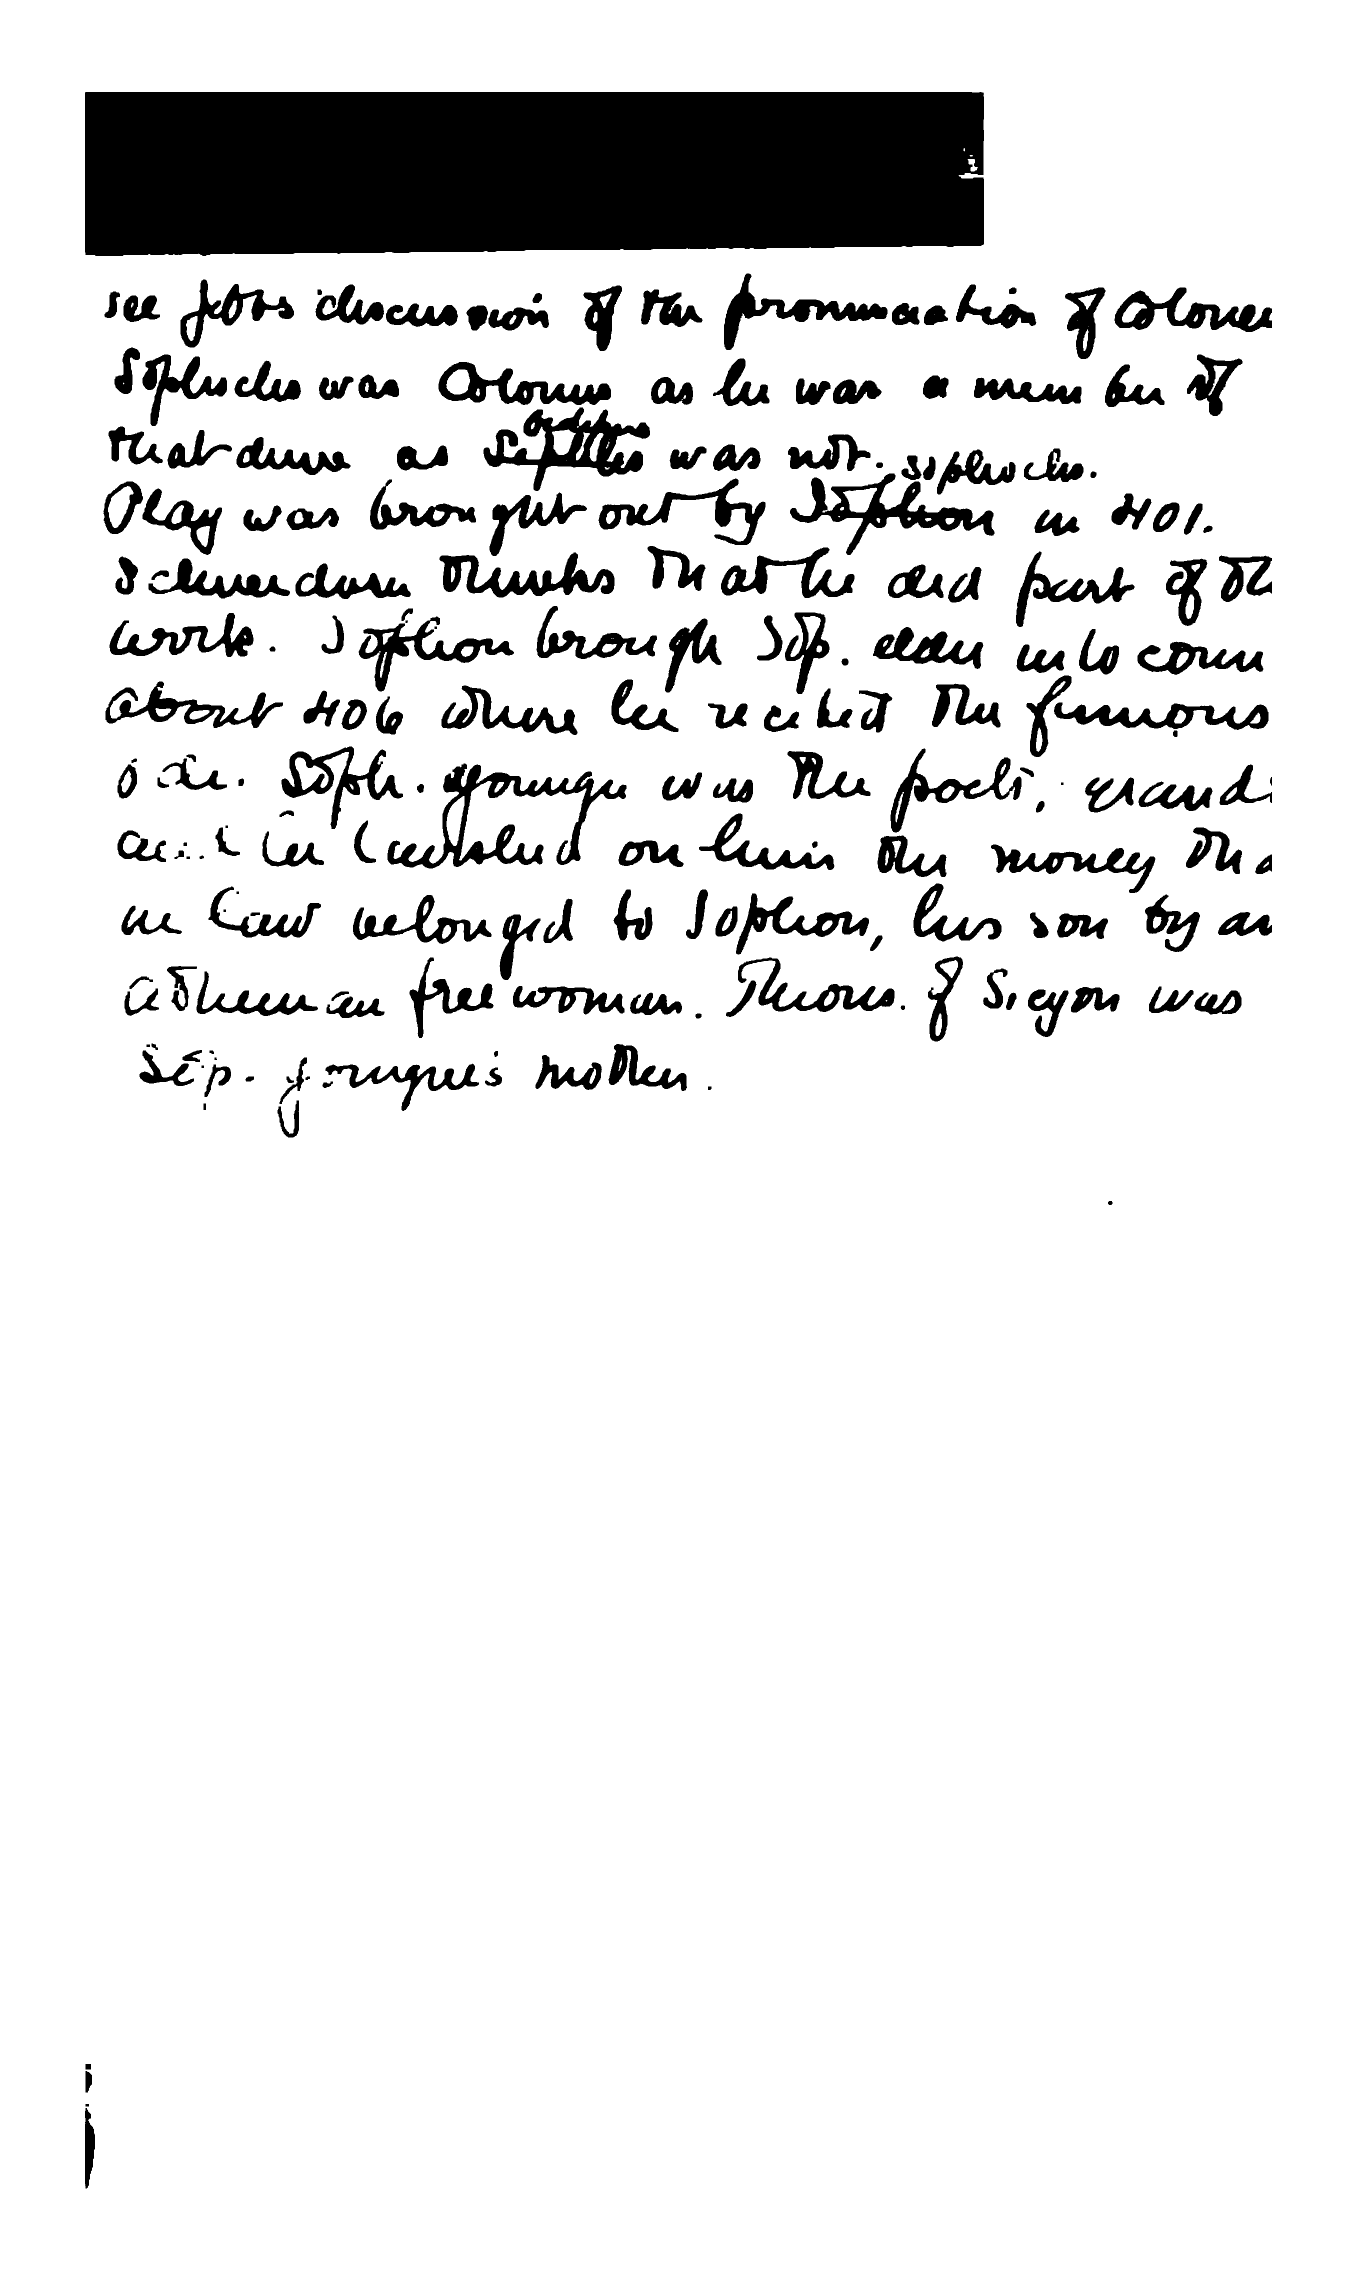 see Jebbs discussion of the pronunciation of Colone
Sophocles was Colonus as he was a member of
Oedipus
that deme as Sophocles was not. Sophocles.
Play was brought out by Iophon in 401.
Schneidewin thinks that he did part of th
work. Iophon brough Sop. elder into cour
about 406 where he recited the famous
ode. Soph. younger was the poets, grands
and he lavished on him the money tha
in law belonged to Iophon, his son by an
Athenian free woman. Theoris. of Sicyon was
Sop. younger's mother.